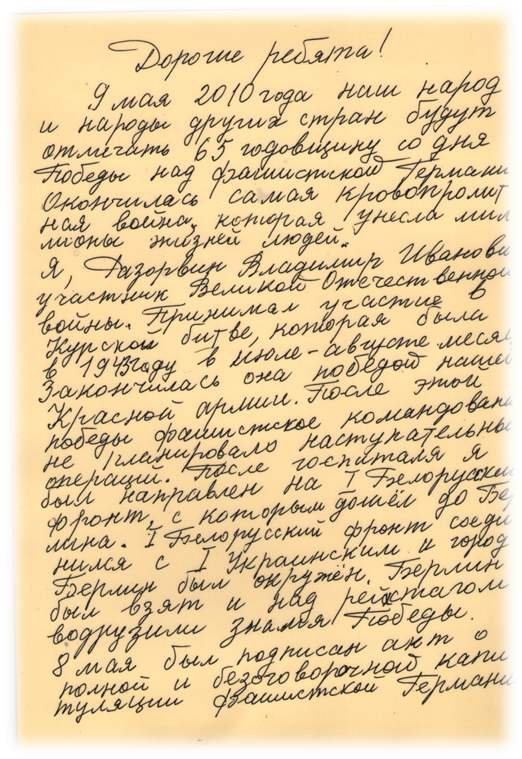 Дорогие ребята!
9 мая 2010 года наш народ
и народы других стран будут
отмечать 65 годовщину со дня
Победы над фашистской Германи
Окончилась самая кровопролит
ная война, которая унесла мил
лионы жизней людей.
Я, Разорвин Владимир Иванови
участник Великой Отечественной
войны. Принимал участие в
Курской битве, которая была
в 1943 году в июле-августе месяц
Закончилась она победой нашей
Красной армии. После этой
победы фашистское командовани
не планировало наступательны
операций. После госпиталя я
был направлен на I Белорусский
фронт, с которым дошёл до Бер
лина. I Белорусский фронт соеди
нился с I Украинским и город
Берлин был окружён. Берлин
был взят и над рейхстагом
водрузили знамя Победы.
8 мая был подписан акт о
полной и безоговорочной капи
туляции фашистской Германи